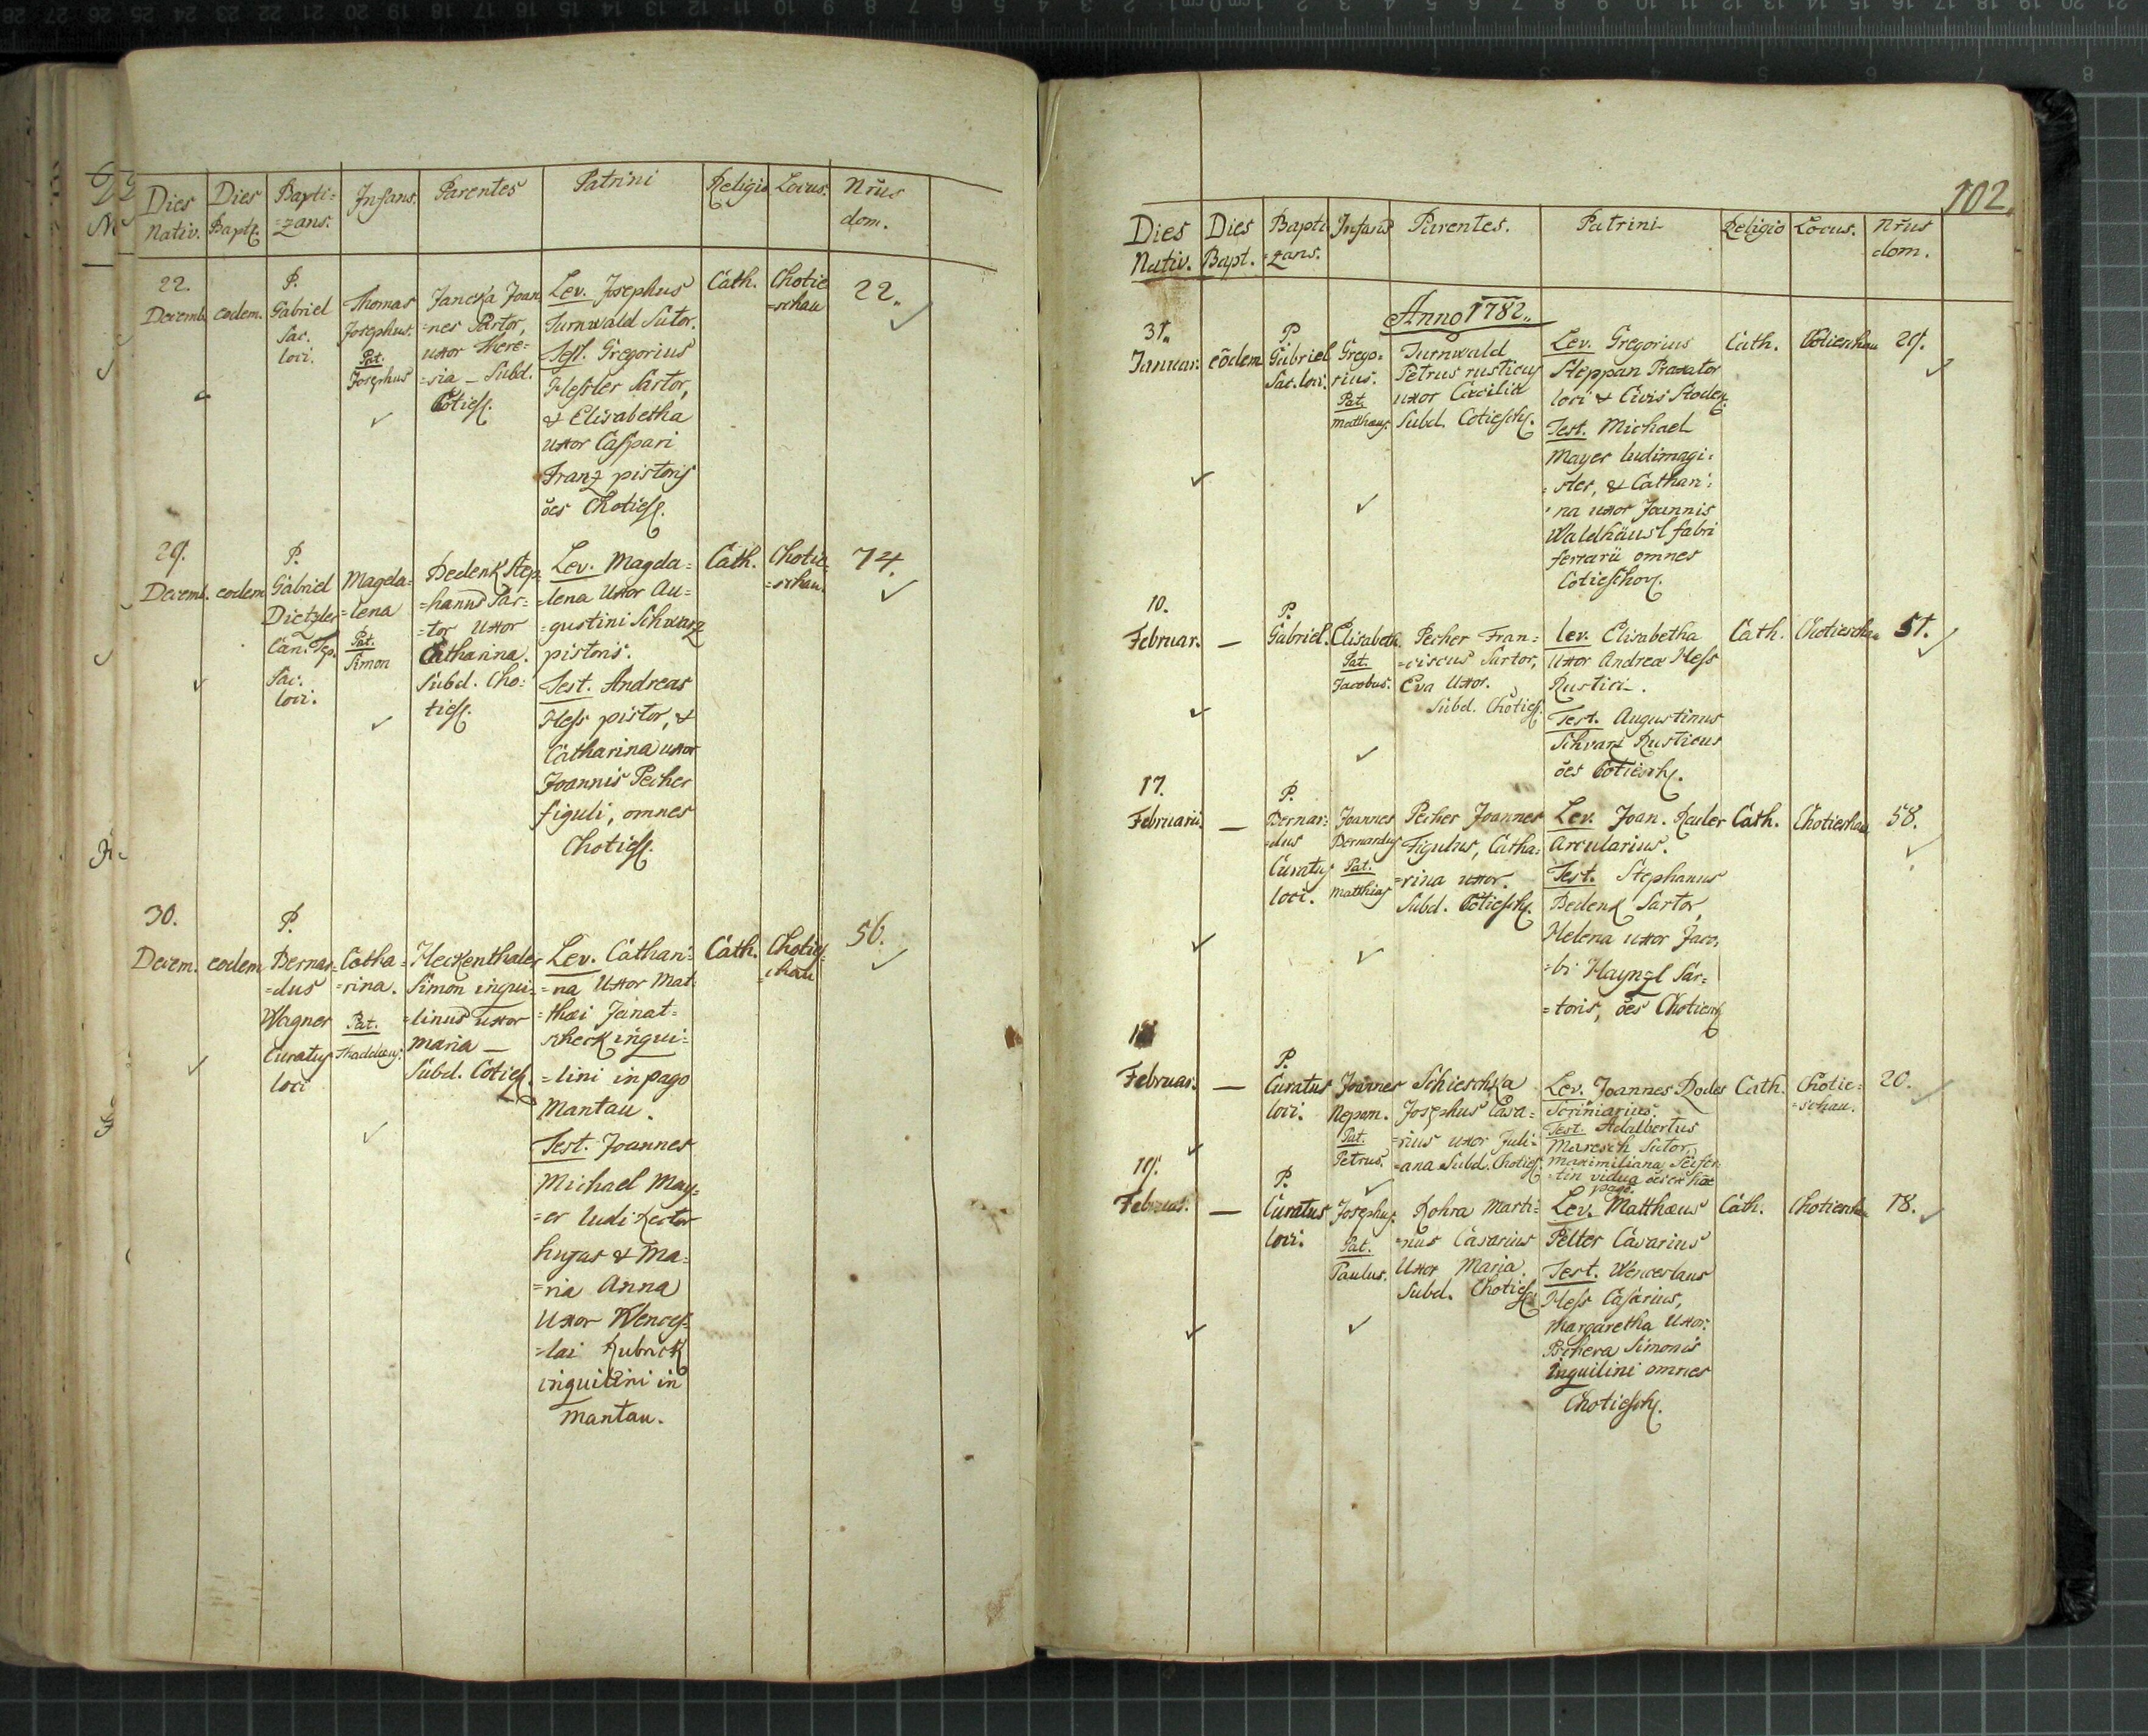 Dies Nativ. Dies Bapt. Bapti=zans. Infans. Parentes Patrini Religio Locus. Nrus dom.
22. Decemb. eodem.
P.
Gabriel
Sac.
loci.
Thomas
Josephus.
Pat.
Josephus
Jancka Joan
=nes Sartor,
uxor There=
=sia – Subd.
Cotiesch.
Lev. Josephus
Turnwald Sutor.
Test. Gregorius
Hessler Sartor,
& Elisabetha
uxor Caspari
Franz pistoris
ões Chotiesch.
Cath.
Chotie
=schau
22.
29. Decemb. eodem
P.
Gabriel
Dietzler
Can. Tep.
Sac.
loci.
Magda=
=lena
Pat.
Simon
Bedenk Step
=hanus Sar=
=tor uxor
Catharina.
Subd. Cho=
tiesch.
Lev. Magda=
=lena uxor Au=
=gustini Schwarz
pistoris.
Test. Andreas
Hess pistor, &
Catharina uxor
Joannis Pecher
figuli, omnes
Chotiesch.
Cath.
Chotie
=schau.
74.
30. Decem. eodem
P.
Bernar=
=dus
Wagner
Curatus
loci
Catha=
=rina.
Pat.
Thaddæus.
Heckenthaler
Simon inqui=
=linus uxor
Maria –
Subd. Cotiesch.
Lev. Cathari=
=na uxor Mat
=thæi Janat=
scheck inqui=
=lini in pago
Mantau.
Test. Joannes
Michael May=
=er ludi Rector
hujus & Ma=
=ria Anna
uxor Wences=
=lai Kubrick
inquilini in
Mantau.
Cath.
Choties
=chau
56.
102.
Dies Nativ. Dies Bapt. Bapti=zans. Infans Parentes. Patrini Religio Locus. Nrus dom.
Anno 1782.
31. Januar. eodem
P.
Gabriel
Sac. loci.
Grego=
rius.
Pat.
Matthæus.
Turnwald
Petrus rusticus
uxor Cæcilia
Subd. Cotiesch.
Lev. Gregorius
Steppan
loci & Civis
Test. Michael
Mayer ludimagi=
=ster, & Cathari=
=na uxor Joannis
Waldhäusl fabri
ferrarii omnes
Cotieschov.
Cath.
Cotieschau
29.
10. Februar. –
P.
Gabriel.
Elisabeth.
Pat.
Jacobus.
Pecher Fran=
=ciscus Sartor,
Eva uxor.
Subd. Chotiesch.
Lev. Elisabetha
uxor Andreæ Hess
Rustici.
Test. Augustinus
Schvarz Rusticus
ões Cotiesch.
Cath.
Chotieschau
51.
17. Februarii. –
P.
Bernar=
=dus
Curatus
loci.
Joannes
Bernardus
Pat.
Matthias
Pecher Joannes
Figulus, Catha=
=rina uxor.
Subd. Cotiesch.
Lev. Joan. Rauler
Arcularius.
Test. Stephanus
Bedenk Sartor,
Helena uxor Jaco=
=bi Haynzl Sar=
=toris, ões Chotiesch.
Cath.
Chotieschau
58.
Februar. –
P.
Curatus
loci.
Joannes
Nepom.
Pat.
Petrus.
Schieschka
Josephus Casa=
=rius uxor Juli=
=ana Subd. Chotiesch.
Lev. Joannes Rodes
Scriniarius.
Test. Adalbertus
Maresch Sutor,
Maximiliana
vidua ões ex hoc
pago.
Cath.
Chotie=
=schau.
20.
19. Februar. –
P.
Curatus
loci.
Josephus.
Pat.
Paulus.
Kohra Marti=
=nus Casarius
uxor Maria.
Subd. Chotiesch.
Lev. Matthæus
Pelter Casarius
Test. Wenceslaus
Hess Casarius,
Margaretha uxor
Simonis
inquilini omnes
Chotiesch.
Cath.
Chotieschau
18.